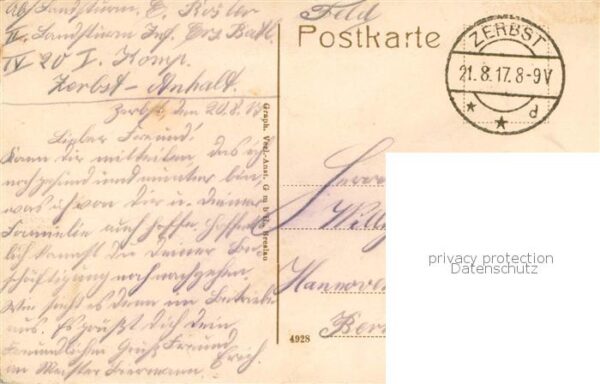 Abs. Landsturm. E. Koster
II. Landsturm Inf. Ers. Batl.
IV 20 I. Komp.
Zerbst - Anhalt.
Zerbst, den 20.8.17
Lieber Freund!
Kann dir mitteilen, das ich
noch gesund und munter bin,
was ich von dir u. deiner
Familie auch hoffe. Hoffent-
lich kannst du deiner Be-
schäftigung noch nachgehen.
Wie sieht es denn im Betriebe
aus. Es grüßt dich dein
Freund
Erich.
an Meister
Feld
Postkarte
ZERBST
21.8.17.8-9V
* * d
Graph. Verl.-Anst. G m b H. Breslau
Herrn
Willy
Hannover
4928
privacy protection
Datenschutz